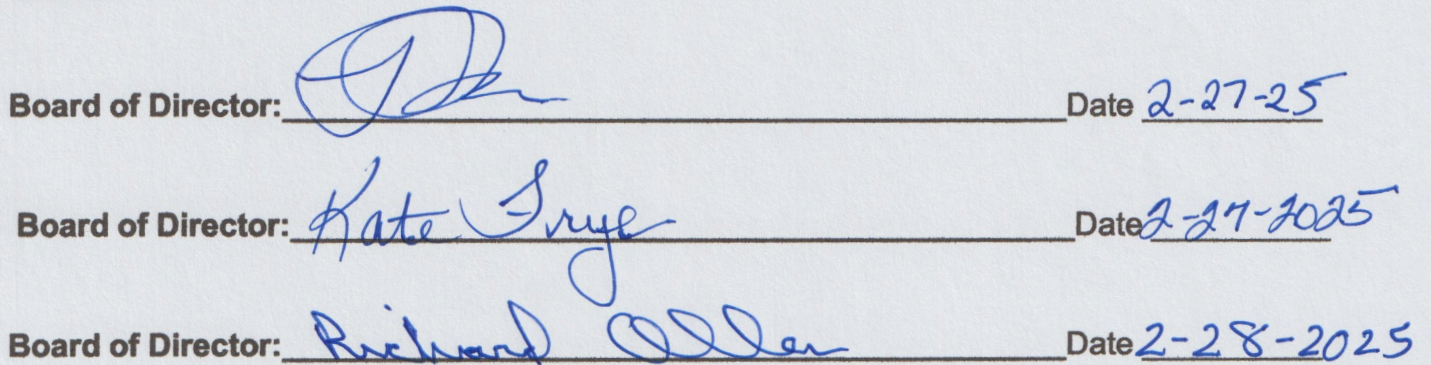 Board of Director: Date 2-27-25
Board of Director: Kate Frye Date 2-27-2025
Board of Director: Richard Date 2-28-2025